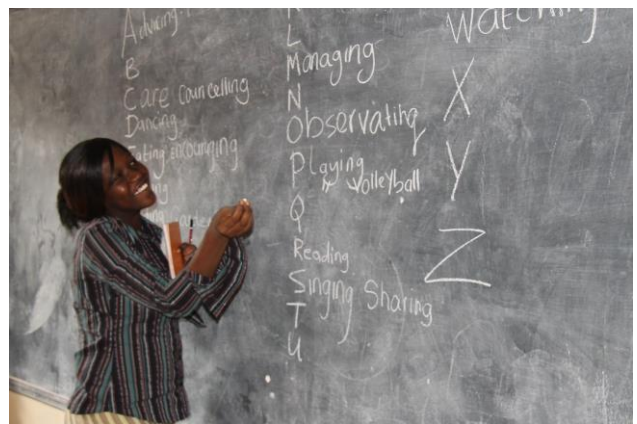 Advising
B
Care Councelling
Dancing
Eating Encouraging
L
Managing
N
Observating
Playing
Volleyball
Q
Reading
Singing Sharing
T
U
Watching
X
Y
Z